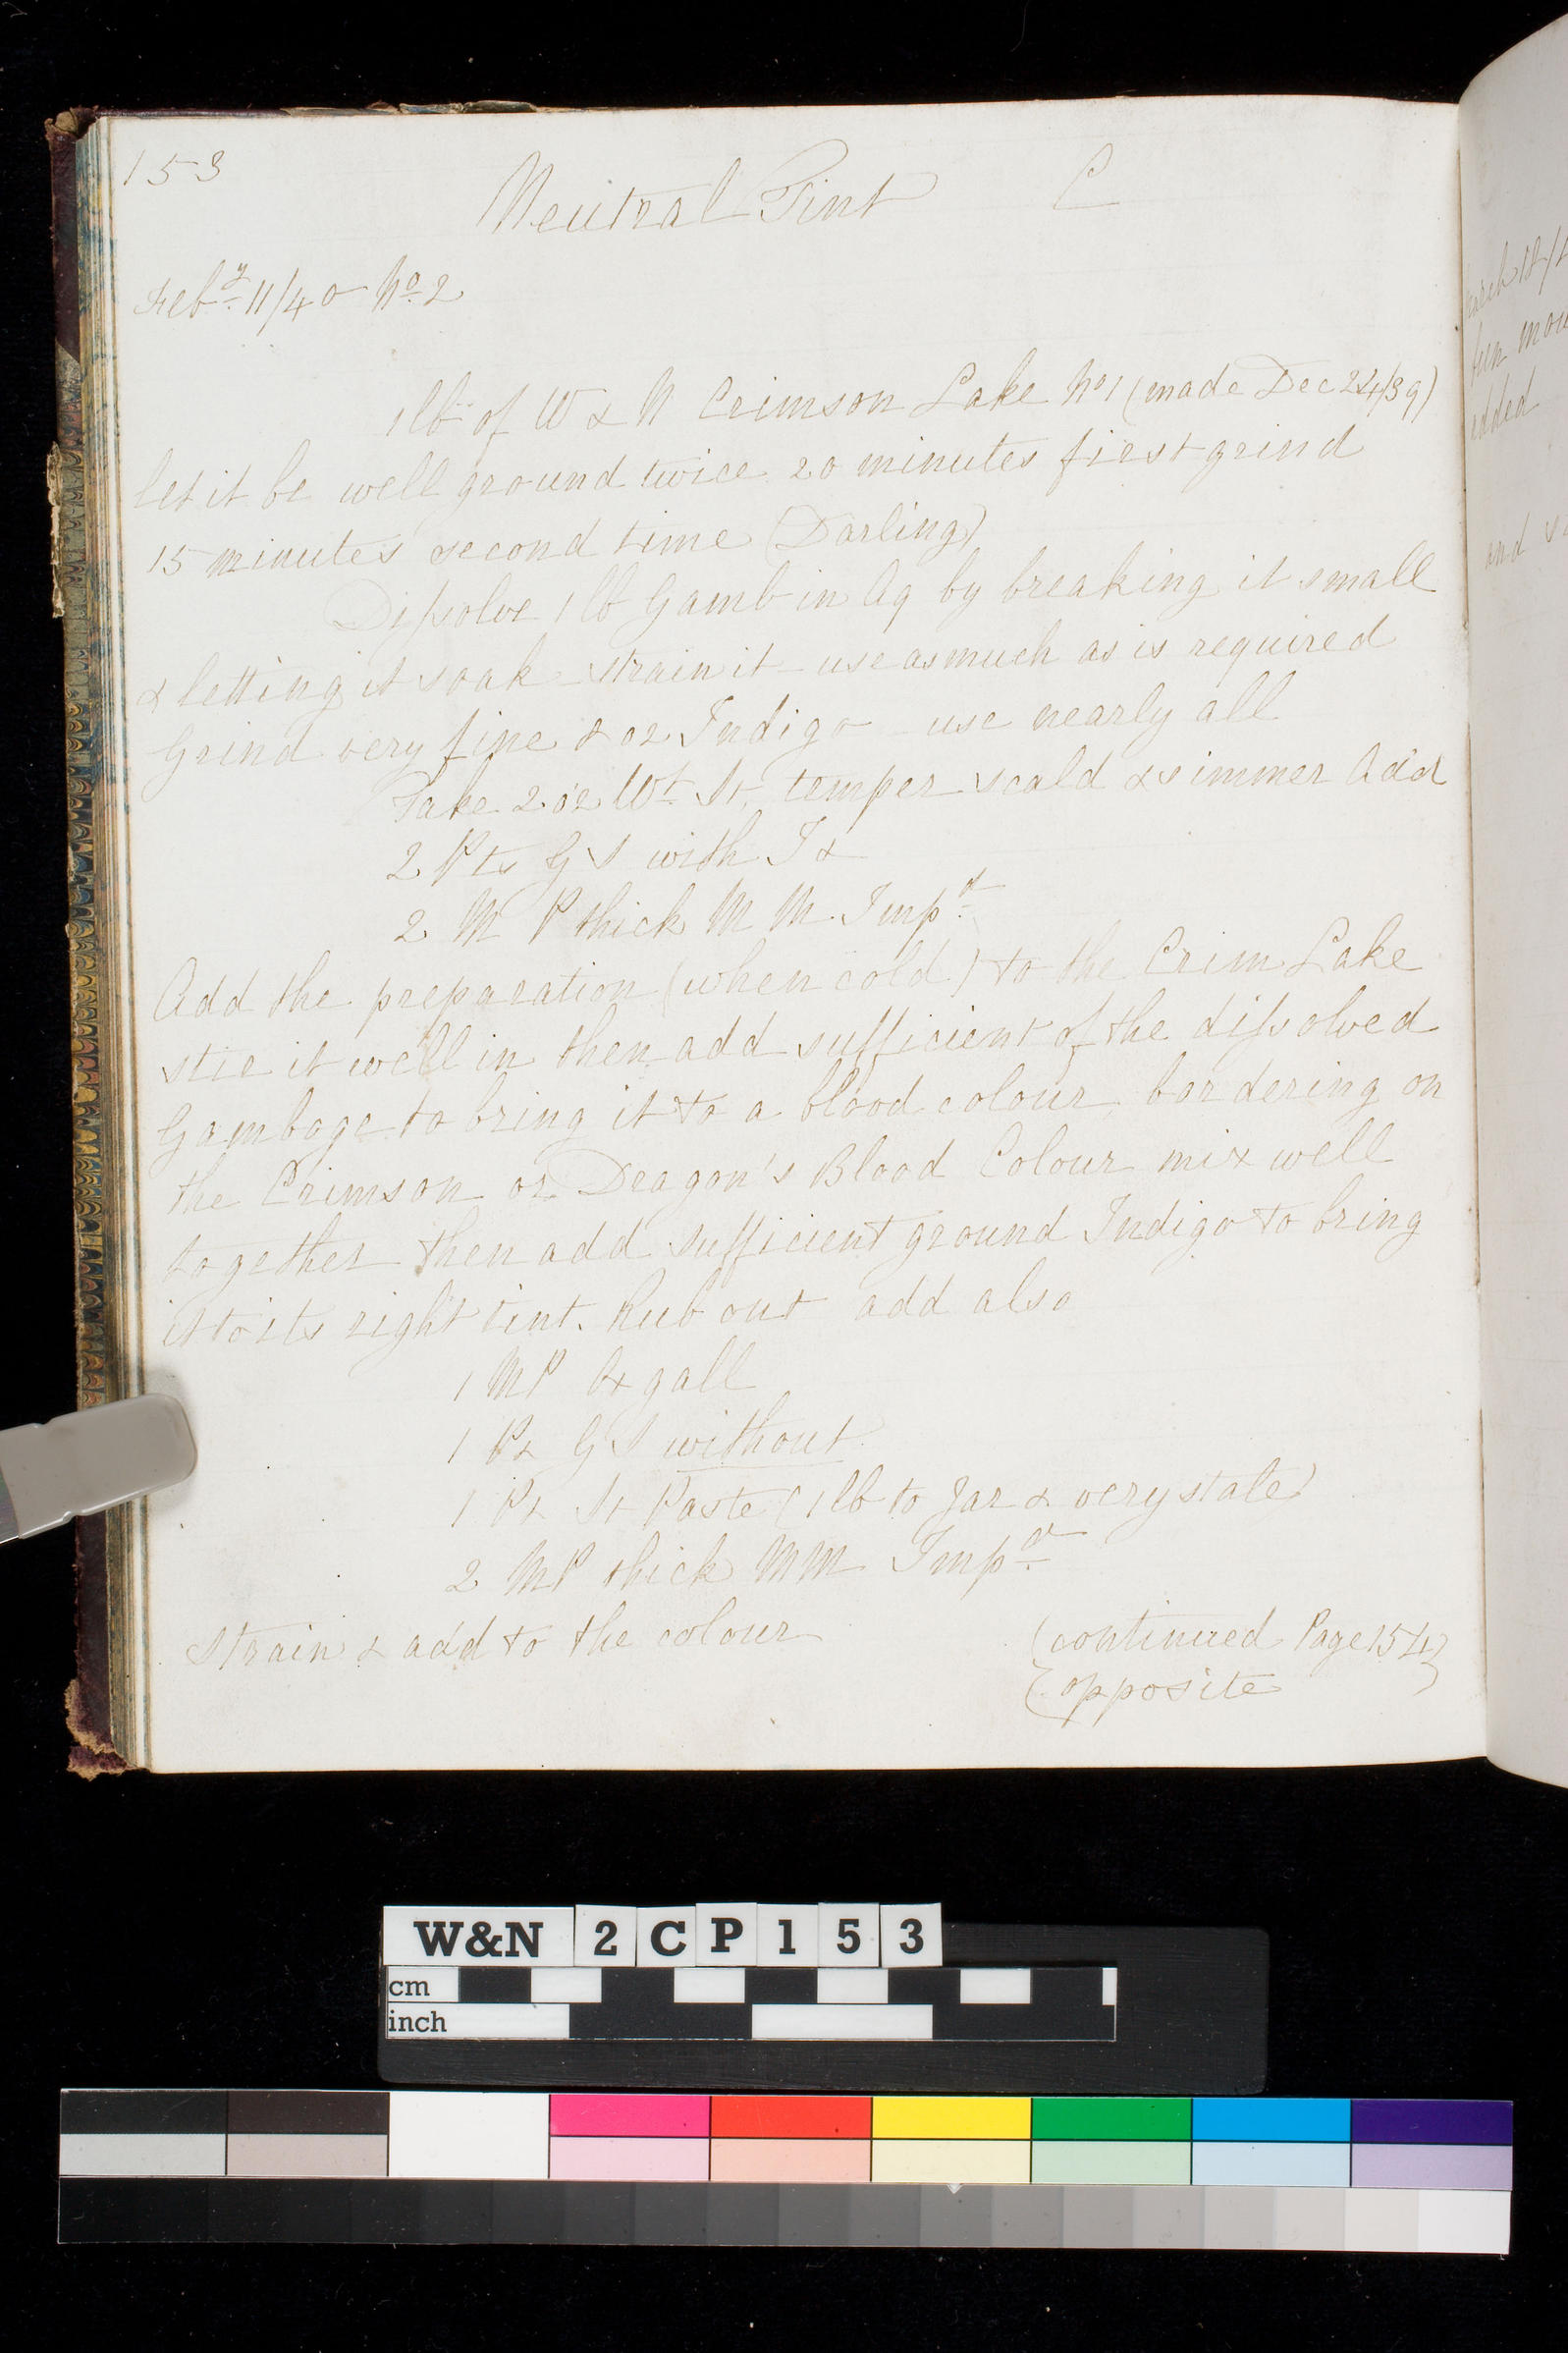 153
Neutral Tint C
Feby 11/40 No 2
1lb of W & N Crimson Lake No 1 (made Dec 24/39)
let it be well ground twice 20 minutes first grind
15 minutes second time (Darling)
Dissolve 1 lb Gamb in Aq by breaking it small
& letting it soak - strain it - use as much as is required
Grind very fine 8 oz Indigo - use nearly all
Take 2 oz Wt St. temper scald & simmer Add
2 Pts G S with
2 M P thick M M Impd
Add the preparation (when cold) to the Crim Lake
stir it well in then add sufficient of the dissolved
Gamboge to bring it to a blood colour bordering on
the Crimson or Dragon's Blood Colour mix well
together then add sufficient ground Indigo to bring
it to its right tint. Rub out add also
1 MP Ox gall
1 Pt G S without
1 Pt St Paste (1lb to Jar & very stale)
2 MP thick MM Impd
Strain & add to the colour
(continued Page 154)
opposite
added
and
W&N 2CP153
cm
inch